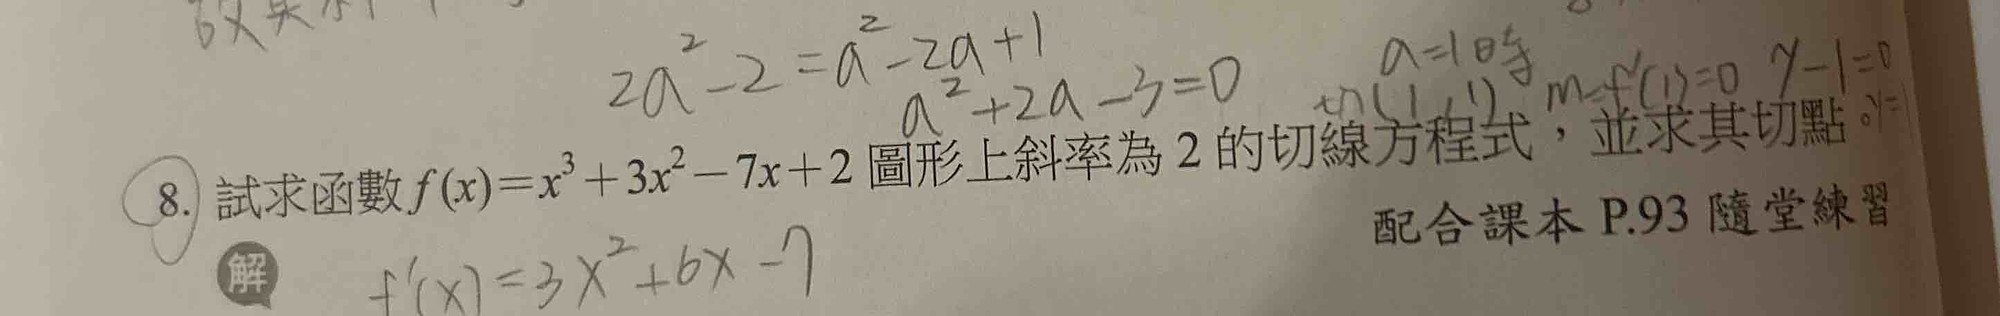 2a²-2=a²-2a+1
a²+2a-3=0
a=1時
切(1,1) m=f'(1)=0 y-1=0
8. 試求函數 f(x)=x³+3x²-7x+2 圖形上斜率為 2 的切線方程式，並求其切點。
配合課本 P.93 隨堂練習
解 f'(x)=3x²+6x-7